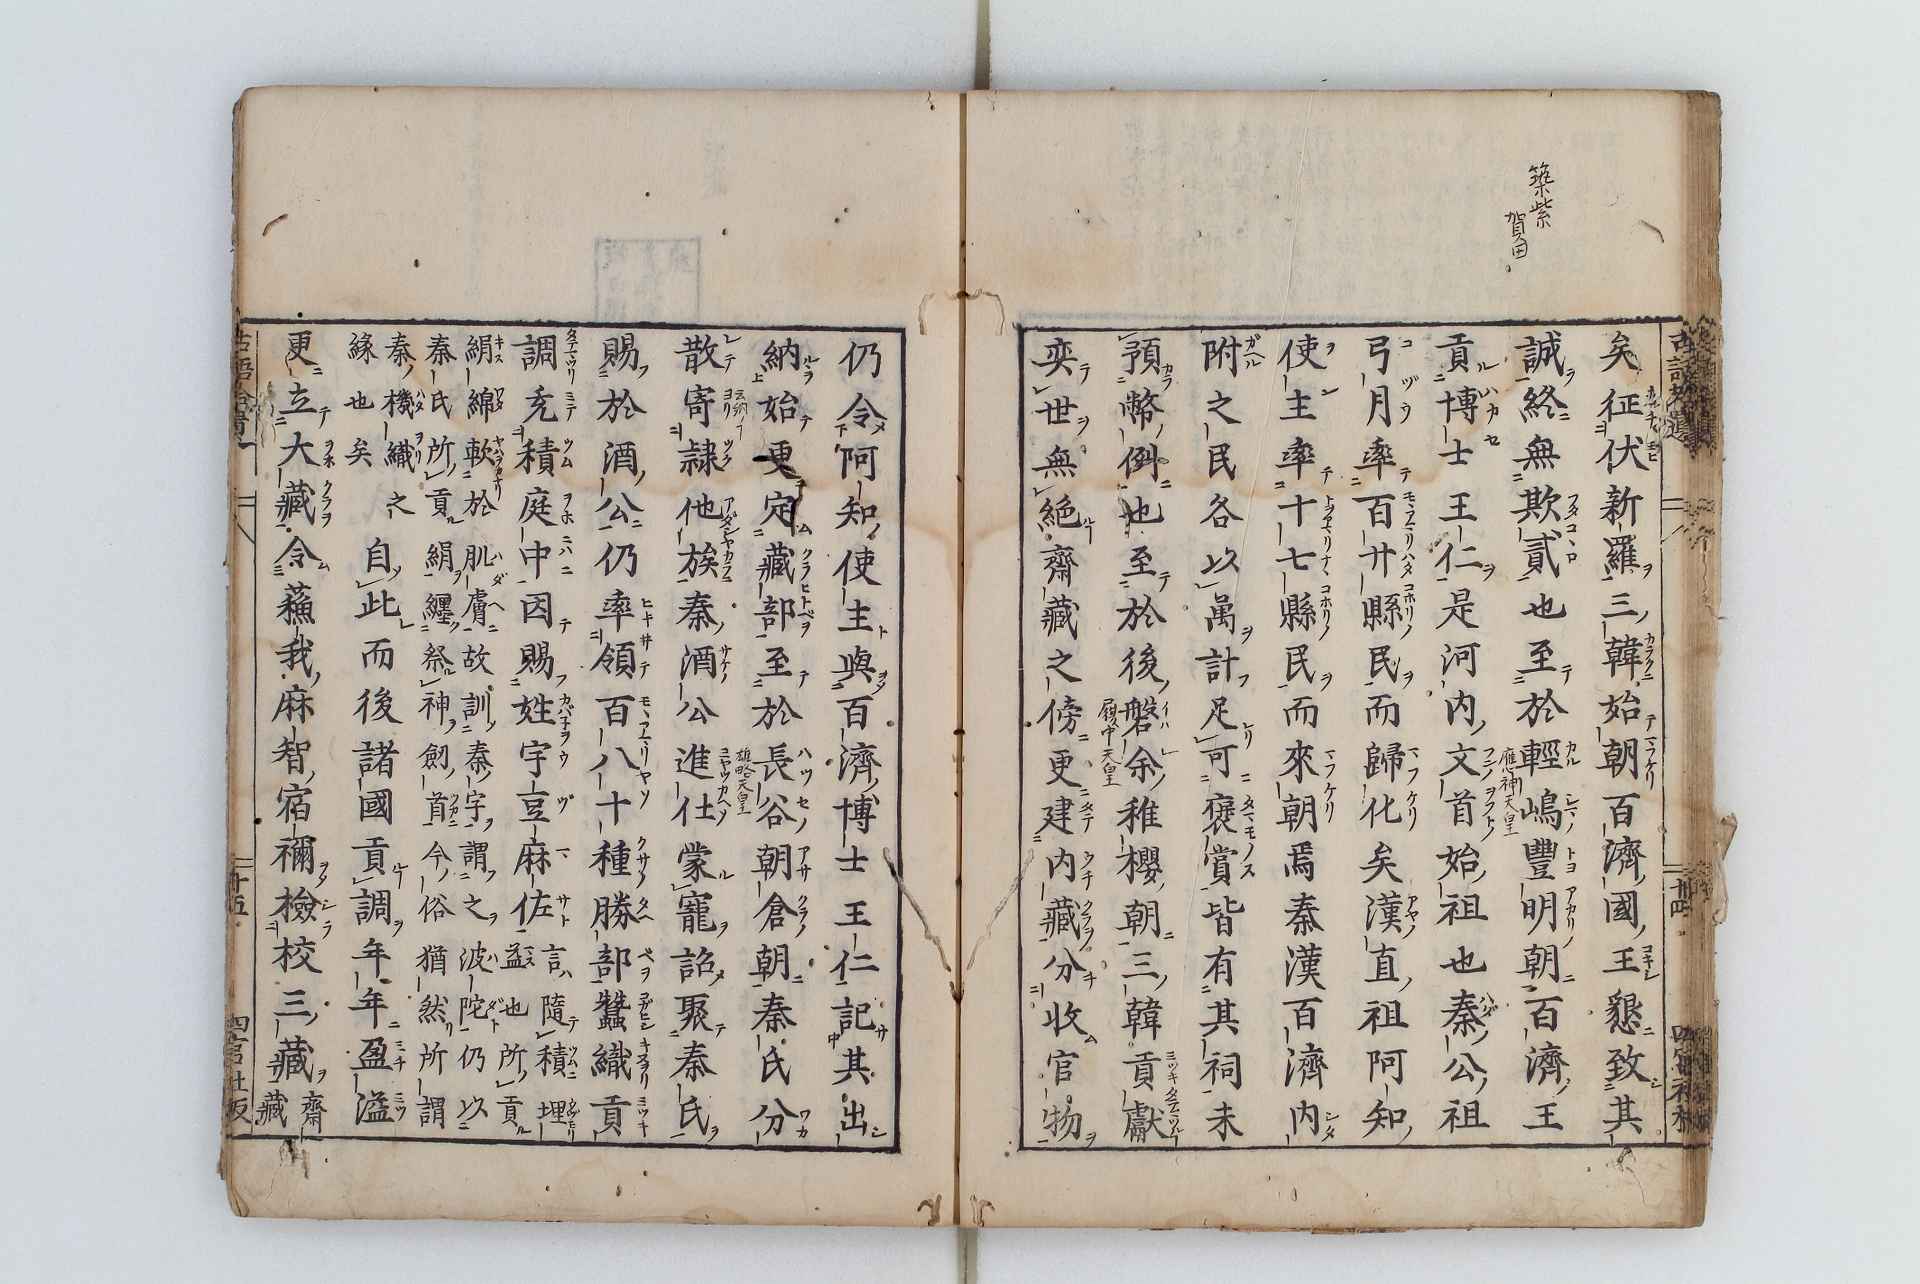 築紫
賀田
矣征伏新羅三韓始朝百濟國王懇致其
誠終無欺貳也至於輕嶋豐明朝百濟王
應神天皇
貢博士王仁是河内文首始祖也秦公祖
弓月率百廿縣民而歸化矣漢直祖阿知
使主率十七縣民而來朝焉秦漢百濟内
附之民各以萬計足可褒賞皆有其祠未
預幣例也至於後磐余稚櫻朝三韓貢獻
履中天皇
奕世無絶齋藏之傍更建内藏分收官物
仍令阿知使主與百濟博士王仁記其出
納始更定藏部至於長谷朝倉朝秦氏分
雄略天皇
散寄隷他族秦酒公進仕蒙寵詔聚秦氏
賜於酒公仍率領百八十種勝部蠶織貢
調充積庭中因賜姓宇豆麻佐
言隨積埋
益也所貢
絹綿軟於肌膚故訓秦字謂之波陀仍以
秦氏所貢絹纒祭神劔首今俗猶然所謂
秦機織之
緣也矣
自此而後諸國貢調年年盈溢
更立大藏令蘓我麻智宿禰檢校三藏
齋
藏
十五